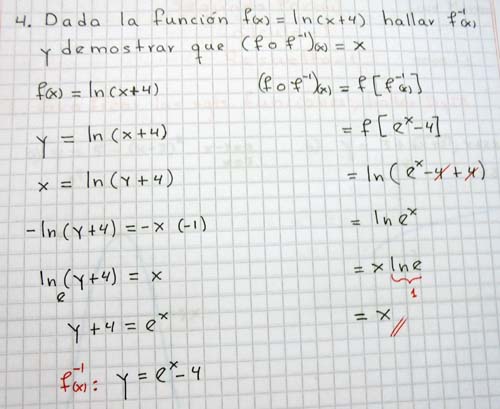 4. Dada la función f(x) = ln(x+4) hallar f⁻¹(x)
y demostrar que (f o f⁻¹)(x) = x
f(x) = ln(x+4)
y = ln(x+4)
x = ln(y+4)
-ln(y+4) = -x (-1)
lnₑ(y+4) = x
y+4 = eˣ
f⁻¹(x): y = eˣ-4
(f o f⁻¹)(x) = f[f⁻¹(x)]
= f[eˣ-4]
= ln(eˣ-4+4)
= ln eˣ
= x ln e
1
= x //